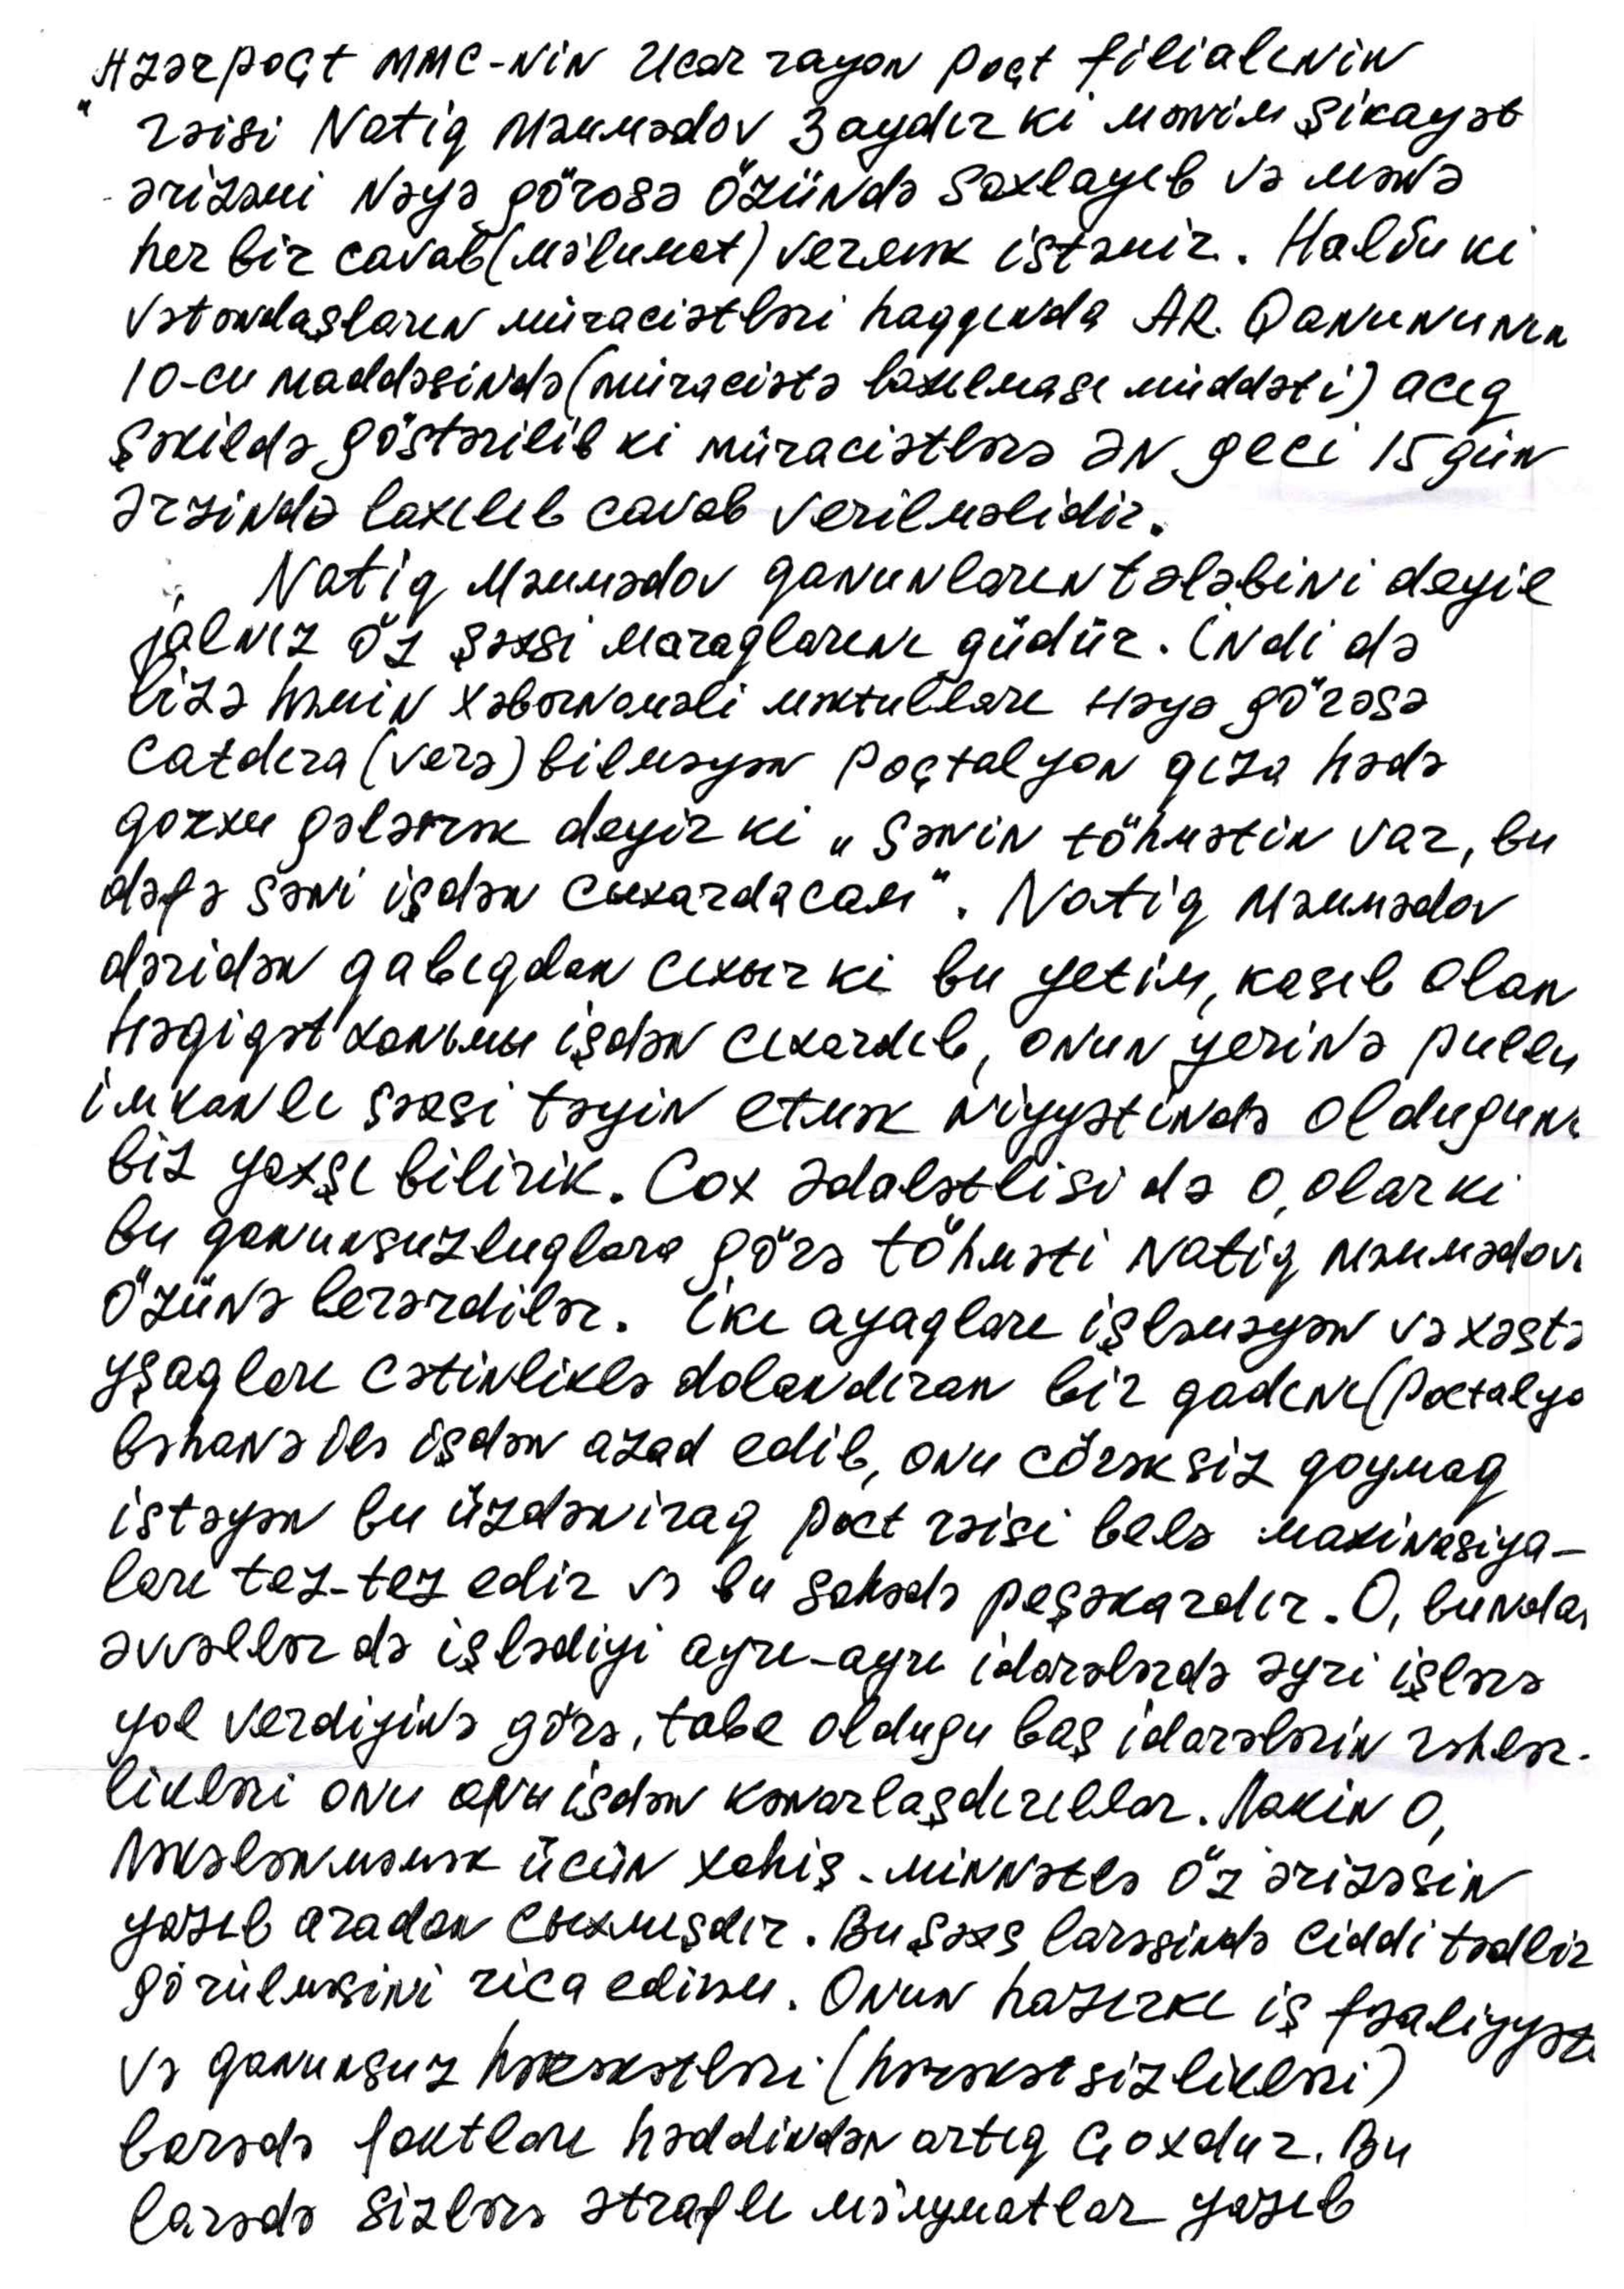 Azərpoçt MMC-nin Ucar rayon poçt filialının
" rəisi Natiq Məmmədov 3 aydır ki mənim şikayət
ərizəmi nəyə görəsə özündə saxlayıb və mənə
her bir cavab (məlumat) vermək istəmir. Halbu ki
vətəndaşların müraciətləri haqqında AR. Qanununın
10-cu maddəsində (müraciətə baxılması müddəti) acıq
şəkildə göstərilib ki müraciətlərə ən geci 15 gün
ərzində baxılıb cavab verilməlidir.
Natiq Məmmədov qanunların tələbini deyil
jalnız öz şəxsi maraqlarını güdür. İndi də
bizə həmin xəbərnaməli məktubları nəyə görəsə
catdıra (verə) bilməyən poçtalyon qıza hədə
qorxu gələrək deyir ki „Sənin töhmətin var, bu
dəfə səni işdən cıxardacam". Natiq Məmmədov
dəridən qabıqdan cıxır ki bu yetim, kasıb olan
Həqiqət xanımı işdən cıxardıb, onun yerinə pullu
imkanlı şəxsi təyin etmək niyyətində olduğunı
biz yaxşı bilirik. Cox ədalətlisi də o, olar ki
bu qanunsuzluqlara görə töhməti Natiq Məmmədovı
özünə berərdilər. İki ayaqları işləməyən və xəstə
uşaqları cətinliklə dolandıran bir qadını (poctalyo
bəhanə ilə işdən azad edib, onu cörəksiz qoymaq
istəyən bu üzdəniraq poct rəisi belə maxinasiya-
ları tez-tez edir və bu sahədə peşəkardır. O, bundan
əvvəllər də işlədiyi ayrı-ayrı idarələrdə əyri işlərə
yol verdiyinə görə, tabe olduğu baş idarələrin rəhbər-
likləri onu onu işdən kənarlaşdırıblar. Lakin o,
ləkələnməmək ücün xahiş-minnətlə öz ərizəsin
yazıb aradan cıxmışdır. Bu şəxs barəsində ciddi tədbir
görülməsini rica edirəm. Onun hazırkı iş fəaliyyəti
və qanunsuz hərəkətləri (hərəkətsizlikləri)
barədə faktları həddindən artıq çoxdur. Bu
barədə sizlərə ətraflı məlumatlar yazıb